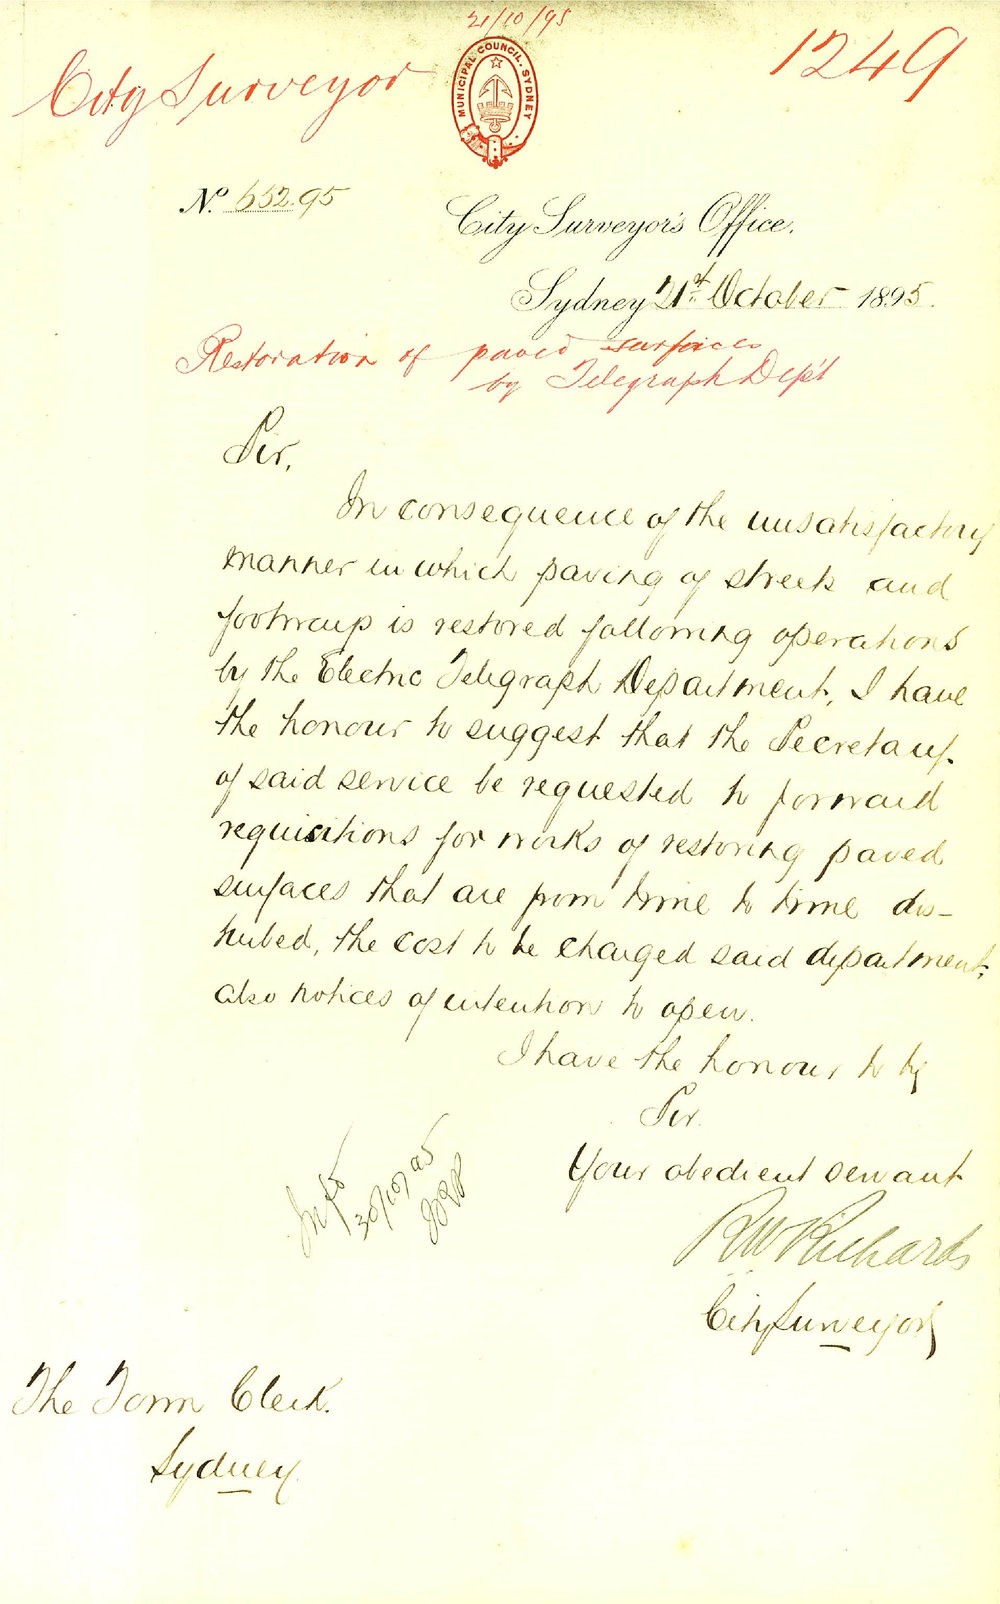 21/10/95
City Surveyor
1249
MUNICIPAL COUNCIL. SYDNEY
No. 652.95
City Surveyor's Office.
Sydney 21st October 1895.
Restoration of paved surfaces
by Telegraph Dep't
Sir,
In consequence of the unsatisfactory
manner in which paving of streets and
footways is restored following operations
by the Electric Telegraph Department, I have
the honour to suggest that the Secretary
of said service be requested to forward
requisitions for works of restoring paved
surfaces that are from time to time dis-
turbed, the cost to be charged said department,
also notices of intention to open.
I have the honour to be
Sir
Your obedient servant
RW Richards
City Surveyor
30/10/95
The Town Clerk.
Sydney.